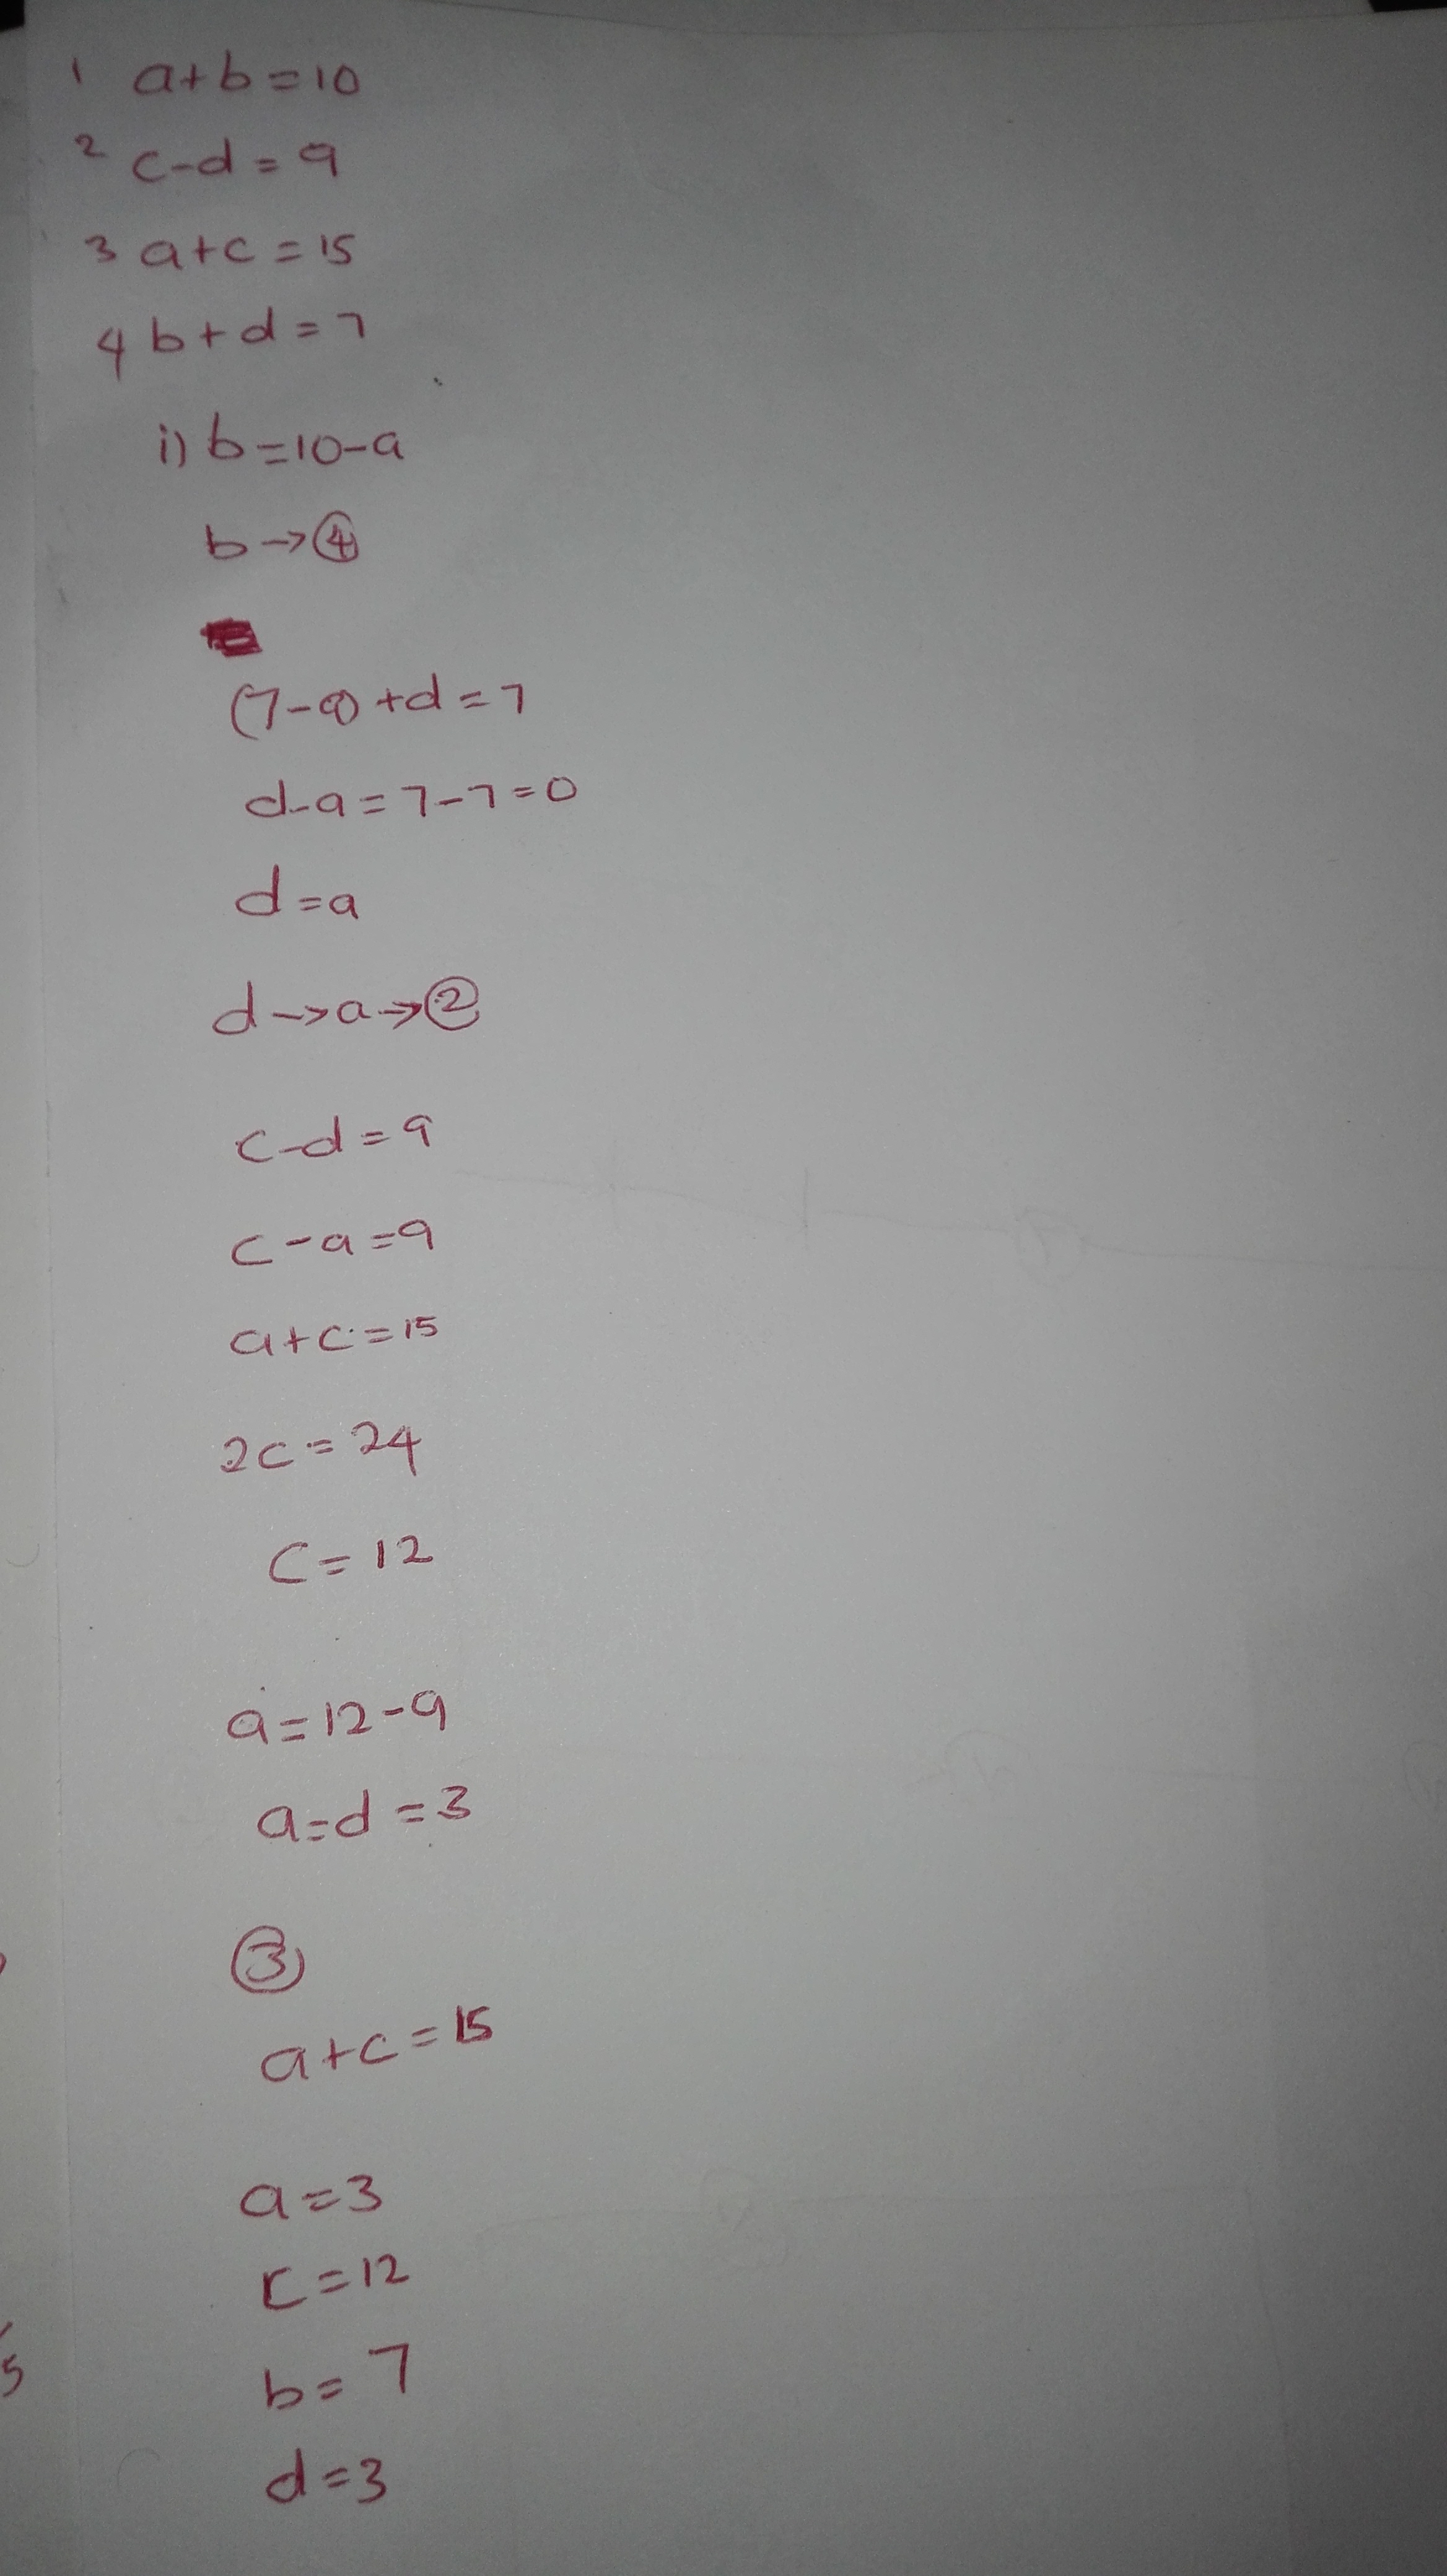 1 a+b=10
2 c-d=9
3 a+c=15
4 b+d=7
i) b=10-a
b→④
(7-a)+d=7
d-a=7-7=0
d=a
d→a→②
c-d=9
c-a=9
a+c=15
2c=24
c=12
a=12-9
a=d=3
③
a+c=15
a=3
c=12
b=7
d=3
5